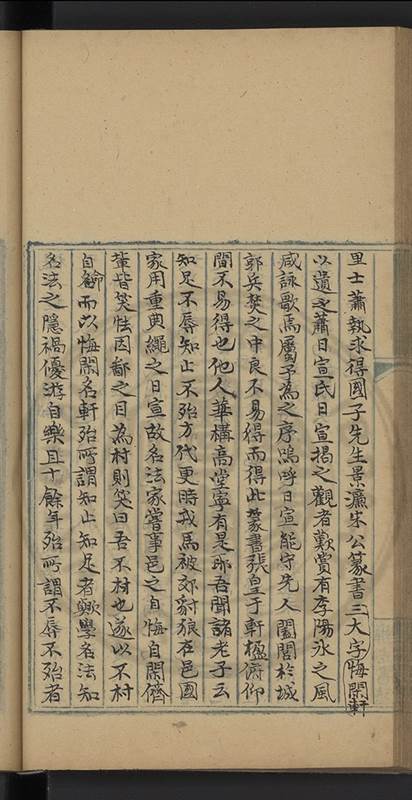 里士蕭執求得國子先生景濂宋公篆書三大字悔閑軒
以遺之蕭日宣氏日宣揭之觀者歎賞有李陽冰之風
咸詠歌焉屬予為之序嗚呼日宣能守先人閭閻於城
郭兵燹之中良不易得而得此篆書張皇于軒楹俯仰
間不易得也他人華構高堂寧有是耶吾聞諸老子云
知足不辱知止不殆方代更時戎馬被郊豺狼在邑國
家用重典繩之日宣故名法家嘗事邑之自悔自閑儕
輩皆笑怪因鄙之目為村則笑曰吾不村也遂以不村
自喻而以悔閑名軒殆所謂知止知足者歟學名法知
名法之隱禍優游自樂且十餘年殆所謂不辱不殆者